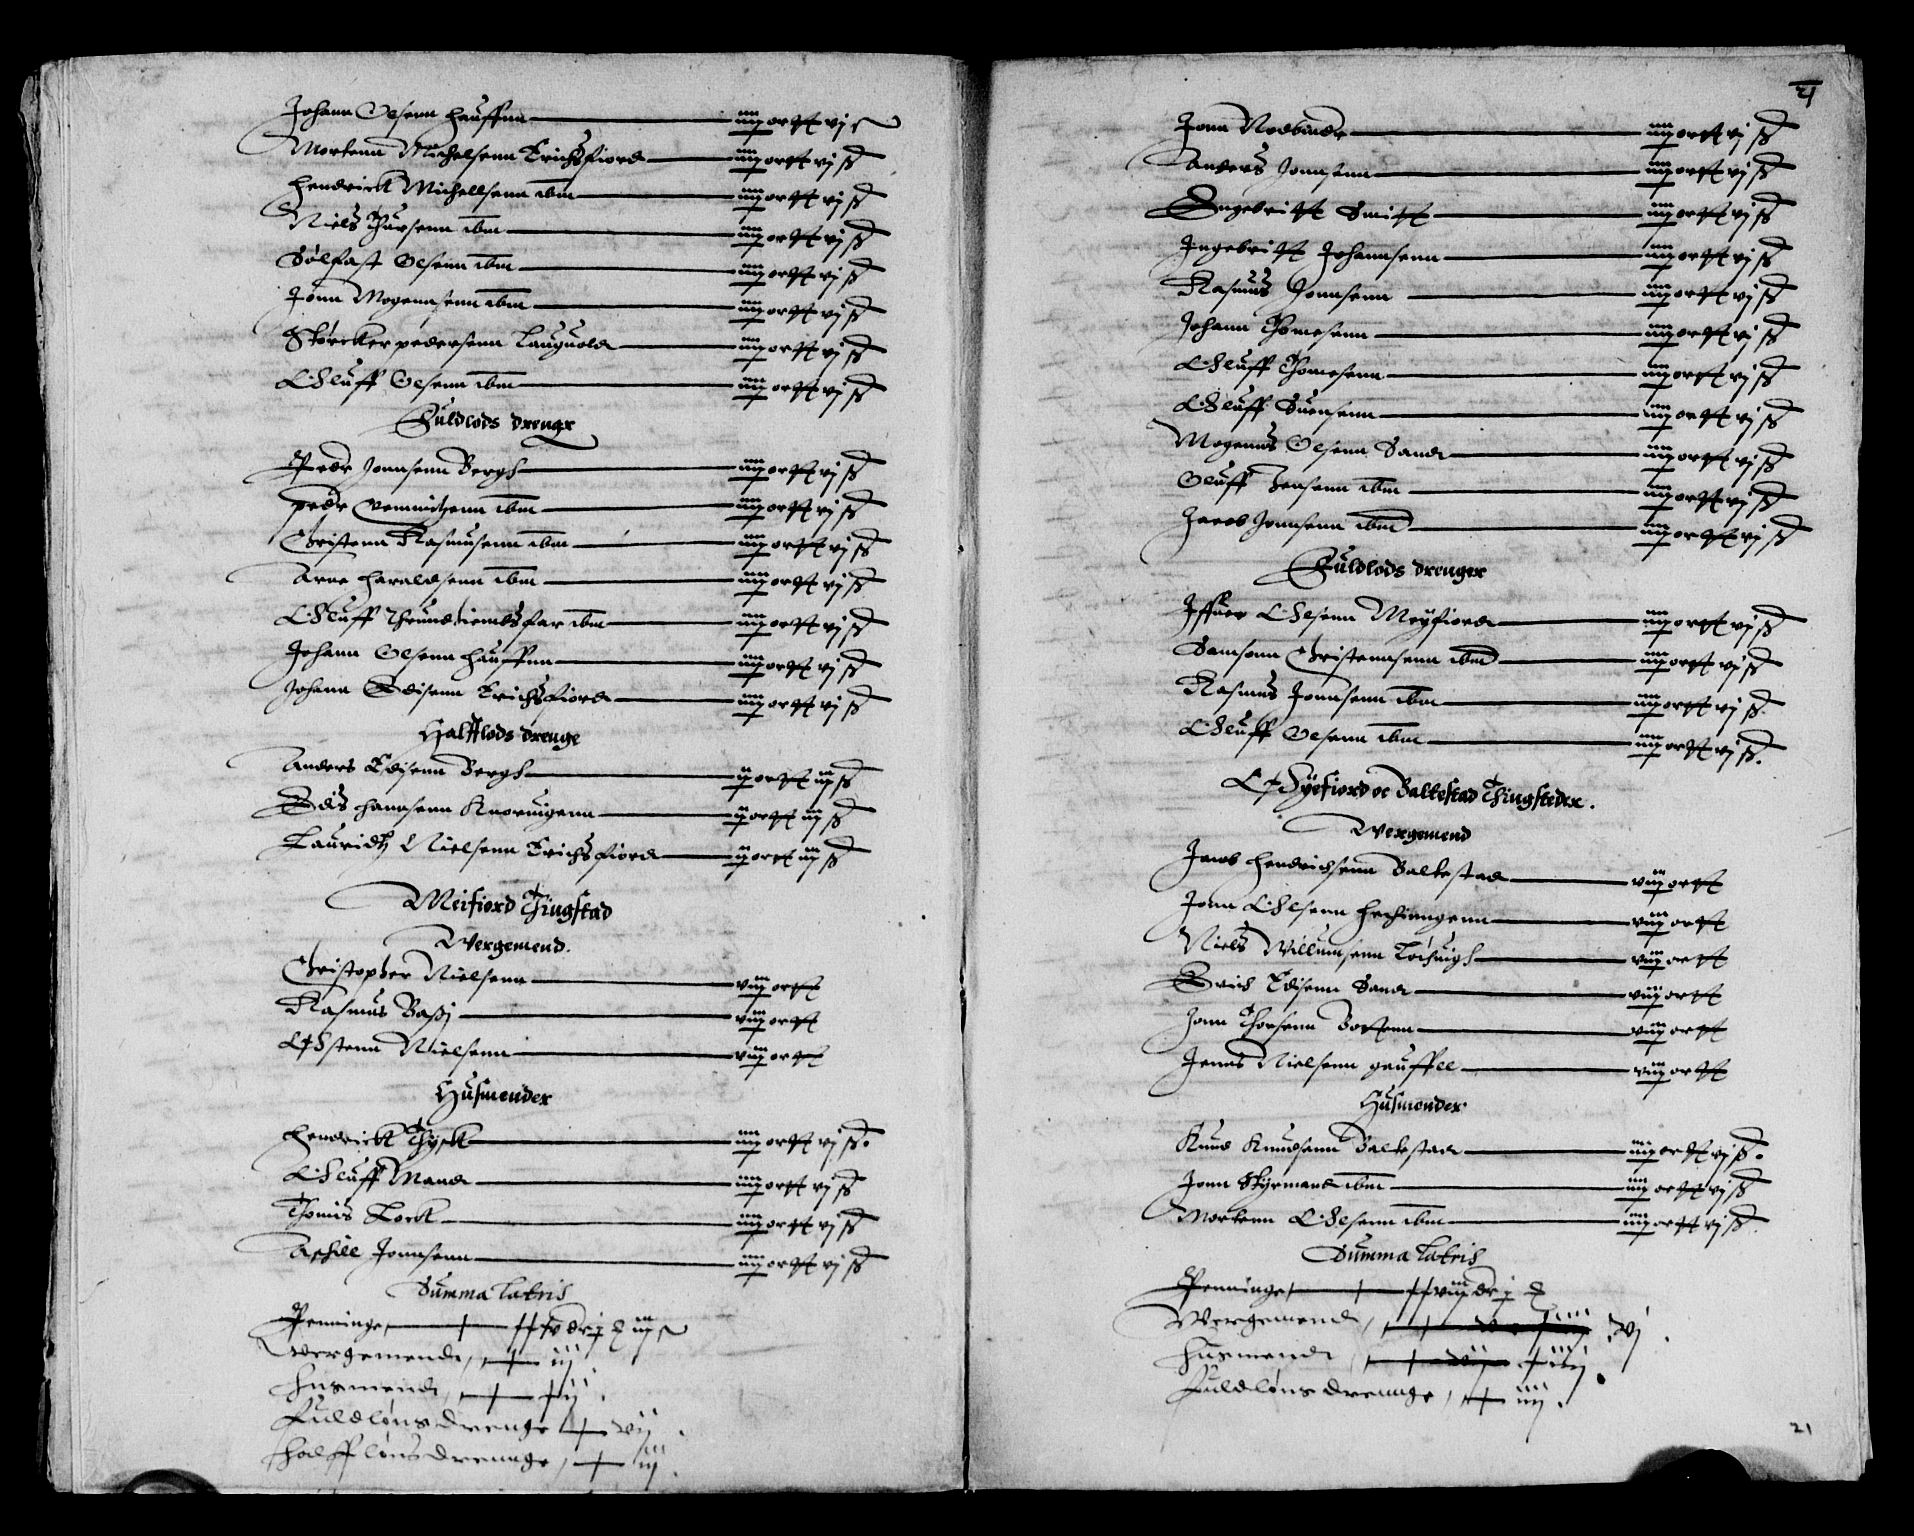 Johann Olsenn hauffnn — iiij ortt vj ß
Mortenn Michelsenn Erichsfiord — iiij ortt vj ß
Hendrick Michellsenn ibm — iiij ortt vj ß
Niels Ifuersenn ibm — iiij ortt vj ß
Sölfast Olsenn ibm — iiij ortt vj ß
Jonn Mogennsenn ibm — iiij ortt vj ß
Störcker pedersenn Lauguold — iiij ortt vj ß
Oluff Olsenn ibm — iiij ortt vj ß
Fuldlods drenge
Peder Jonnsenn Bergh — iiij ortt vj ß
peder ibm — iiij ortt vj ß
Christenn Rasmusenn ibm — iiij ortt vj ß
Arne haraldsenn ibm — iiij ortt vj ß
Oluff Thrundhiembsfar ibm — iiij ortt vj ß
Johann Olsenn hauffnn — iiij ortt vj ß
Johann Edisenn Erichsfiord — iiij ortt vj ß
Halfflods drenge
Anders Edisenn Bergh — ij ortt iij ß
Edis hannsenn Knoruigenn — ij ortt iij ß
Lauridtz Nielsenn Erichsfiord — ij ortt iij ß
Meifiord Tingstad
Wergemend.
Christopher Nielsenn — viij ortt
Rasmus Bassj — viij ortt
Østenn Nielsenn — viij ortt
Husmender
Hendrick Tysk — iiij ortt vj ß.
Oluff Mand — iiij ortt vj ß
Thomis Kock — iiij ortt vj ß
Askill Jonnsenn — iiij ortt vj ß
Summa Lateris
Penninge
Wergemend, iij
Husmend,
Fuldlöns drenge vij
Halfflöns drennge, iij.
21
Jonn — iiij ortt vj ß
Anders Jonnsenn — iiij ortt vj ß
Engebritt Smitt — iiij ortt vj ß
Ingebritt Johannsenn — iiij ortt vj ß
Rasmus Jonnsenn — iiij ortt vj ß
Johann Thomesenn — iiij ortt vj ß
Oluff Thomesenn — iiij ortt vj ß
Oluff Suensenn — iiij ortt vj ß
Mogenns Olsenn Sand — iiij ortt vj ß
Oluff Jensenn ibm — iiij ortt vj ß
Jacob Jonnsenn ibm — iiij ortt vj ß
Fuldlods drenger
Iffuer Olsenn Meyfiord — iiij ortt vj ß
Samsonn Christennsenn ibm — iiij ortt vj ß
Rasmus Jonnsenn ibm — iiij ortt vj ß.
Oluff Olsenn ibm — iiij ortt vj ß.
Öyefiord oc Balkestad Tingsteder.
Wergemend
Jacob Hendrichsenn Balkestad — viij ortt
Jonn Olsenn — viij ortt
Niels Willumsenn — viij ortt
Erich Edisenn Sand — viij ortt
Jonn Thorsenn Bottenn — viij ortt
Jenns Nielsenn — viij ortt
Husmender
Knud Knudsenn Balkestad — iiij ortt vj ß.
Jonn Styrmand ibm — iiij ortt vj ß
Mortenn Olsenn ibm — iiij ortt vj ß.
Summa Lateris
Penninge
Wergemend, vj.
Husmend
Fuldlöns drennge, iiij.
21